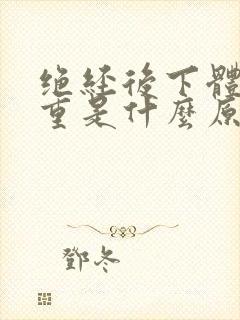 绝经後下體
重是什麼原
鄧冬